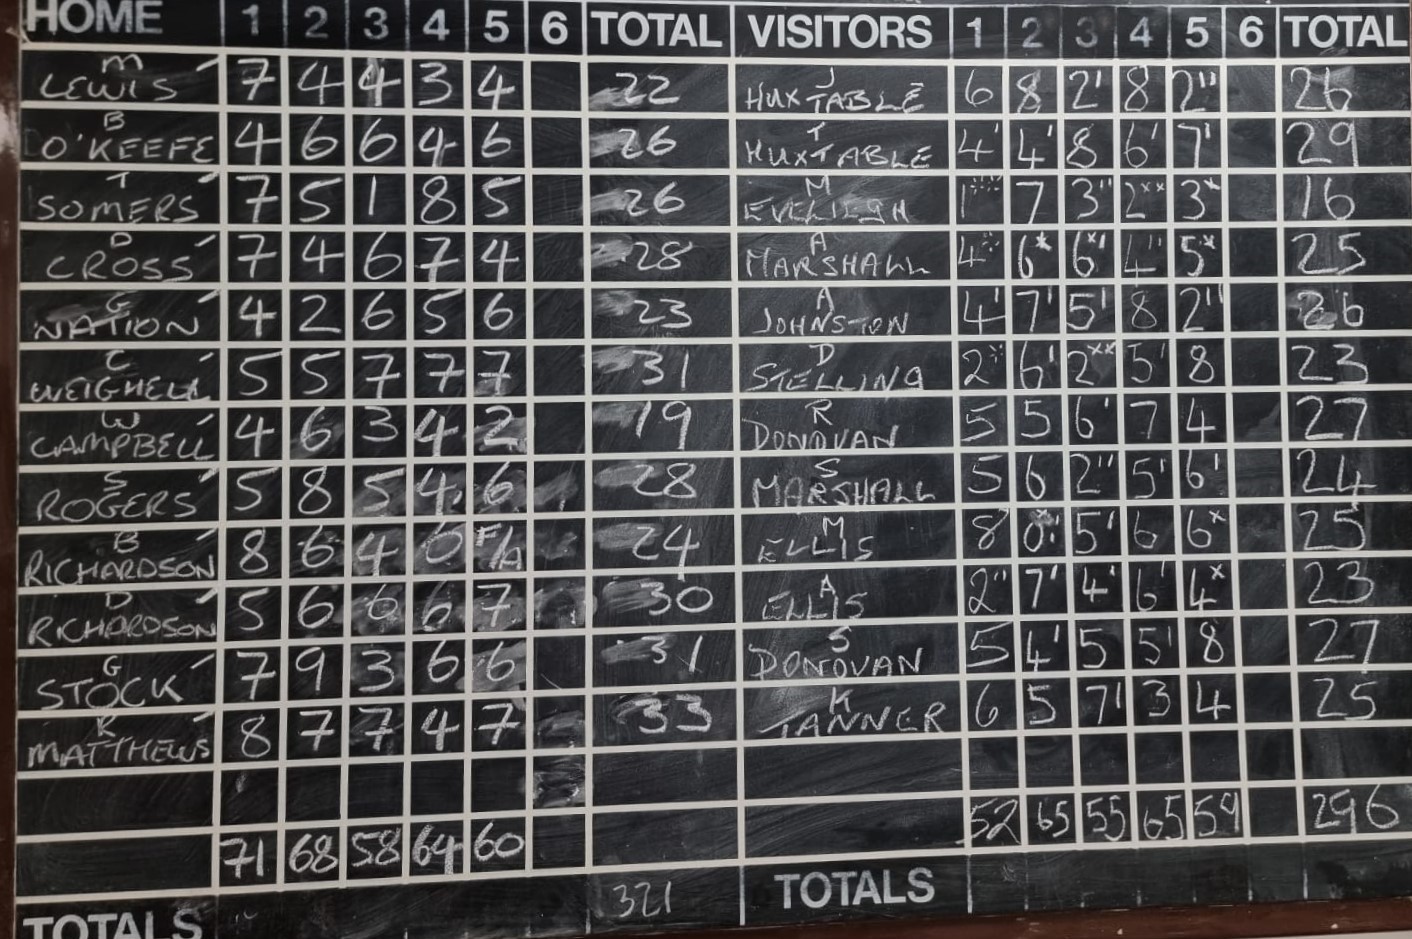 HOME 1 2 3 4 5 6 TOTAL VISITORS 1 2 3 4 5 6 TOTAL
M LEWIS 7 4 4 3 4 22 J HUXTABLE 6 8 2' 8 2'' 26
B O'KEEFE 4 6 6 4 6 26 T HUXTABLE 4' 4' 8 6' 7' 29
T SOMERS 7 5 1 8 5 26 M EVELIEGH 1 7 3'' 2** 3* 16
D CROSS 7 4 6 7 4 28 A MARSHALL 4 6* 6*' 4'' 5* 25
G NATION 4 2 6 5 6 23 A JOHNSTON 4' 7' 5' 8 2'' 26
C WEIGHELL 5 5 7 7 7 31 D STELLING 2 6' 2** 5' 8 23
W CAMPBELL 4 6 3 4 2 19 R DONOVAN 5 5 6' 7 4 27
S ROGERS 5 8 5 4 6 28 S MARSHALL 5 6 2'' 5' 6' 24
B RICHARDSON 8 6 4 0 F/A 24 M ELLIS 8 0 5' 6 6* 25
D RICHARDSON 5 6 6 6 7 30 A ELLIS 2'' 7' 4' 6' 4* 23
G STOCK 7 9 3 6 6 31 S DONOVAN 5 4' 5 5' 8 27
R MATTHEWS 8 7 7 4 7 33 K TANNER 6 5 7' 3 4 25
71 68 58 64 60 52 65 55 65 59 296
TOTALS 321 TOTALS